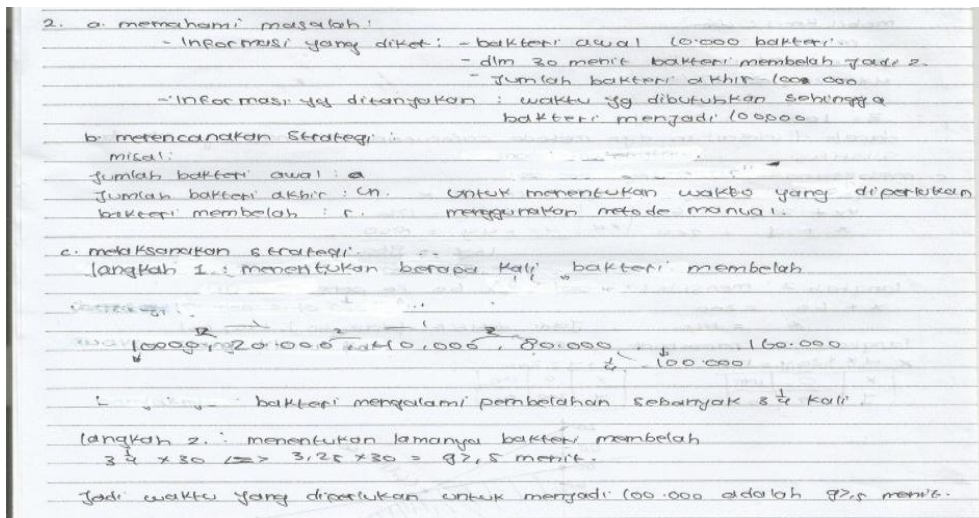 2. a. memahami masalah:
- Informasi yang diket: - bakteri awal 10.000 bakteri.
- dlm 30 menit bakteri membelah jadi 2.
- Jumlah bakteri akhir 100 000
- Informasi yg ditanyakan : waktu yg dibutuhkan sehingga
bakteri menjadi 100000
b. merencanakan Strategi :
misal:
Jumlah bakteri awal : a
Jumlah bakteri akhir : Un. untuk menentukan waktu yang diperlukan
bakteri membelah : r. menggunakan metode manual.
c. melaksanakan strategi.
langkah 1 : menentukan berapa kali bakteri membelah
2 2 2
10000, 20.000 40.000, 80.000 160.000
1/4 100.000
bakteri mengalami pembelahan sebanyak 3 1/4 kali
langkah 2. : menentukan lamanya bakteri membelah
3 1/4 x 30 <=> 3,25 x 30 = 97,5 menit.
Jadi waktu yang diperlukan untuk menjadi 100.000 adalah 97,5 menit.